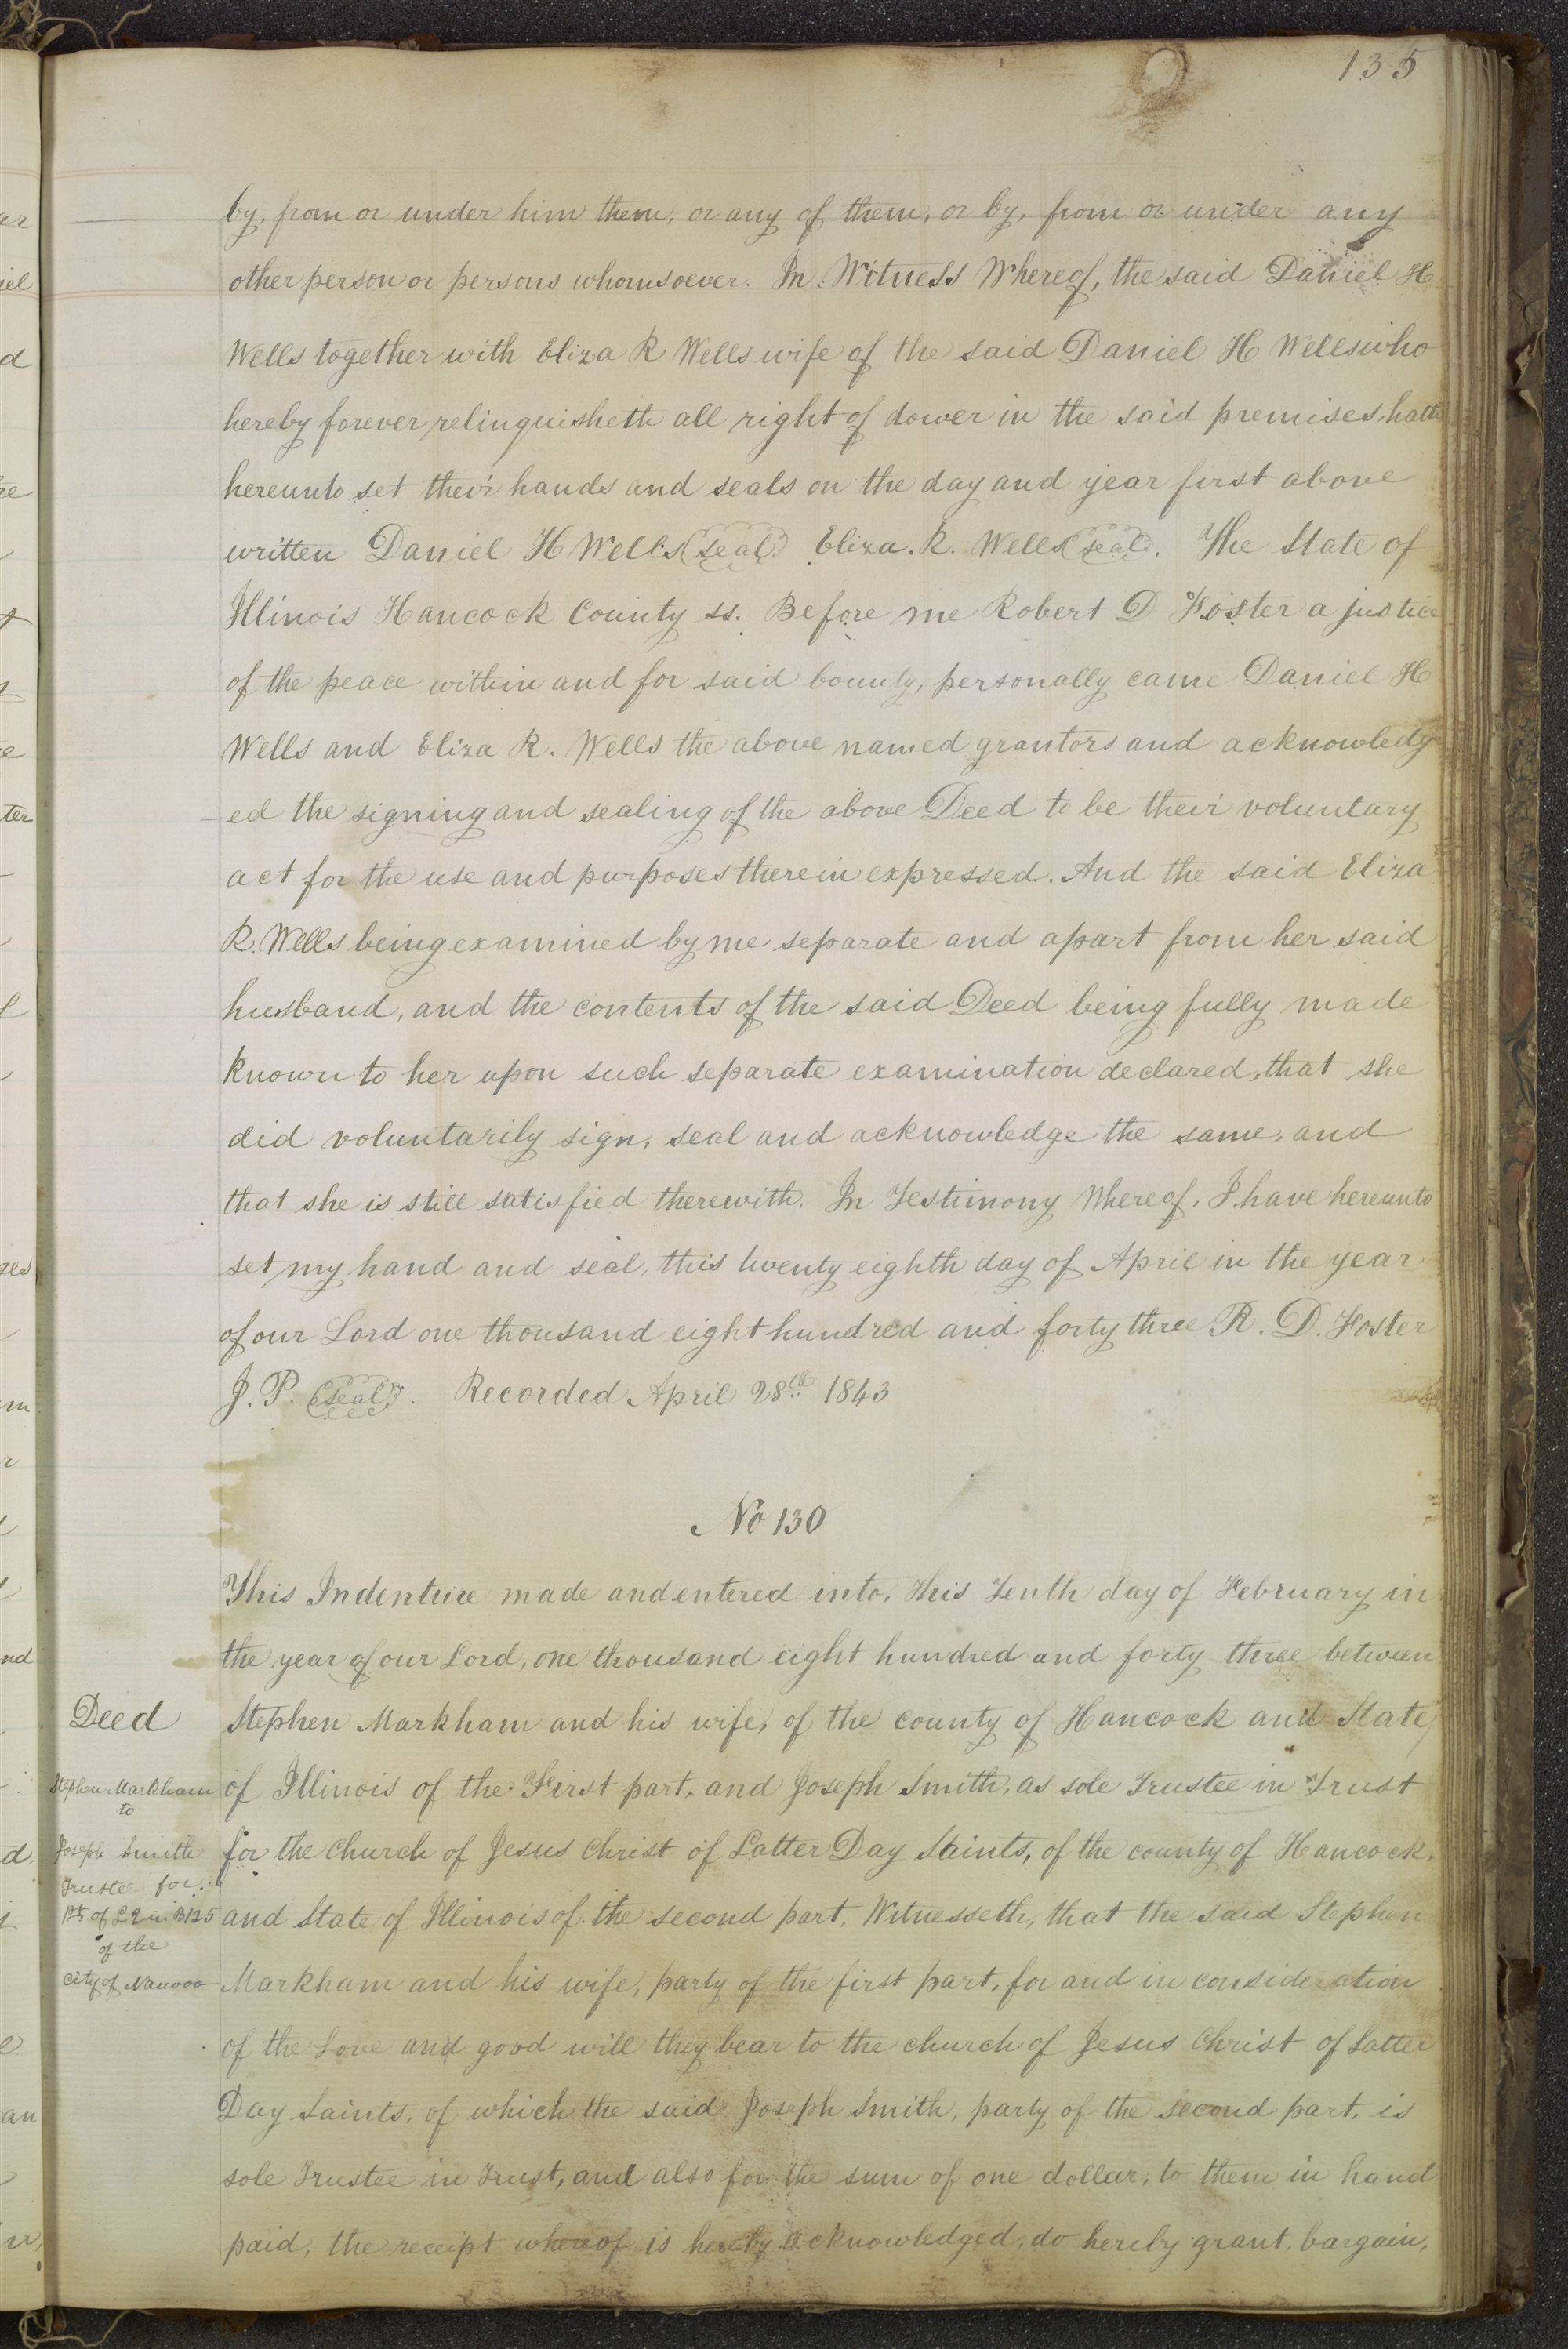 135
by, from or under him them, or any of them, or by, from or under any
other person or persons whomsoever. In Witness Whereof, the said Daniel H
Wells together with Eliza R Wells wife of the said Daniel H Wells who
hereby forever relinquisheth all right of dower in the said premises, hath
hereunto set their hands and seals on the day and year first above
written Daniel H Wells (seal) Eliza. R. Wells (seal). The State of
Illinois Hancock County ss. Before me Robert D Foster a justice
of the peace within and for said County, personally came Daniel H
Wells and Eliza R. Wells the above named grantors and acknowledg
ed the signing and sealing of the above Deed to be their voluntary
act for the use and purposes therein expressed. And the said Eliza
R. Wells being examined by me separate and apart from her said
husband, and the contents of the said Deed being fully made
known to her upon such separate examination declared, that she
did voluntarily sign, seal and acknowledge the same, and
that she is still satisfied therewith. In Testimony Whereof, I have hereunto
set my hand and seal, this twenty eighth day of April in the year
of our Lord one thousand eight hundred and forty three R. D. Foster
J. P. (seal). Recorded April 28th 1843
No 130
This Indenture made and entered into, this Tenth day of February in
the year of our Lord, one thousand eight hundred and forty three between
Deed
Stephen Markham and his wife, of the county of Hancock and State,
Stephen Markham
to
Joseph Smith
Trustee for
Pt of L 2 in B 125
of the
City of Nauvoo
of Illinois of the First part, and Joseph Smith, as sole Trustee in Trust
for the church of Jesus Christ of Latter Day Saints, of the county of Hancock,
and State of Illinois of the second part, Witnesseth, that the said Stephen
Markham and his wife, party of the first part, for and in consideration
of the Love and good will they bear to the church of Jesus Christ of Latter
Day Saints, of which the said Joseph Smith, party of the second part, is
sole Trustee in Trust, and also for the sum of one dollar, to them in hand
paid, the receipt whereof is hereby acknowledged, do hereby grant, bargain,